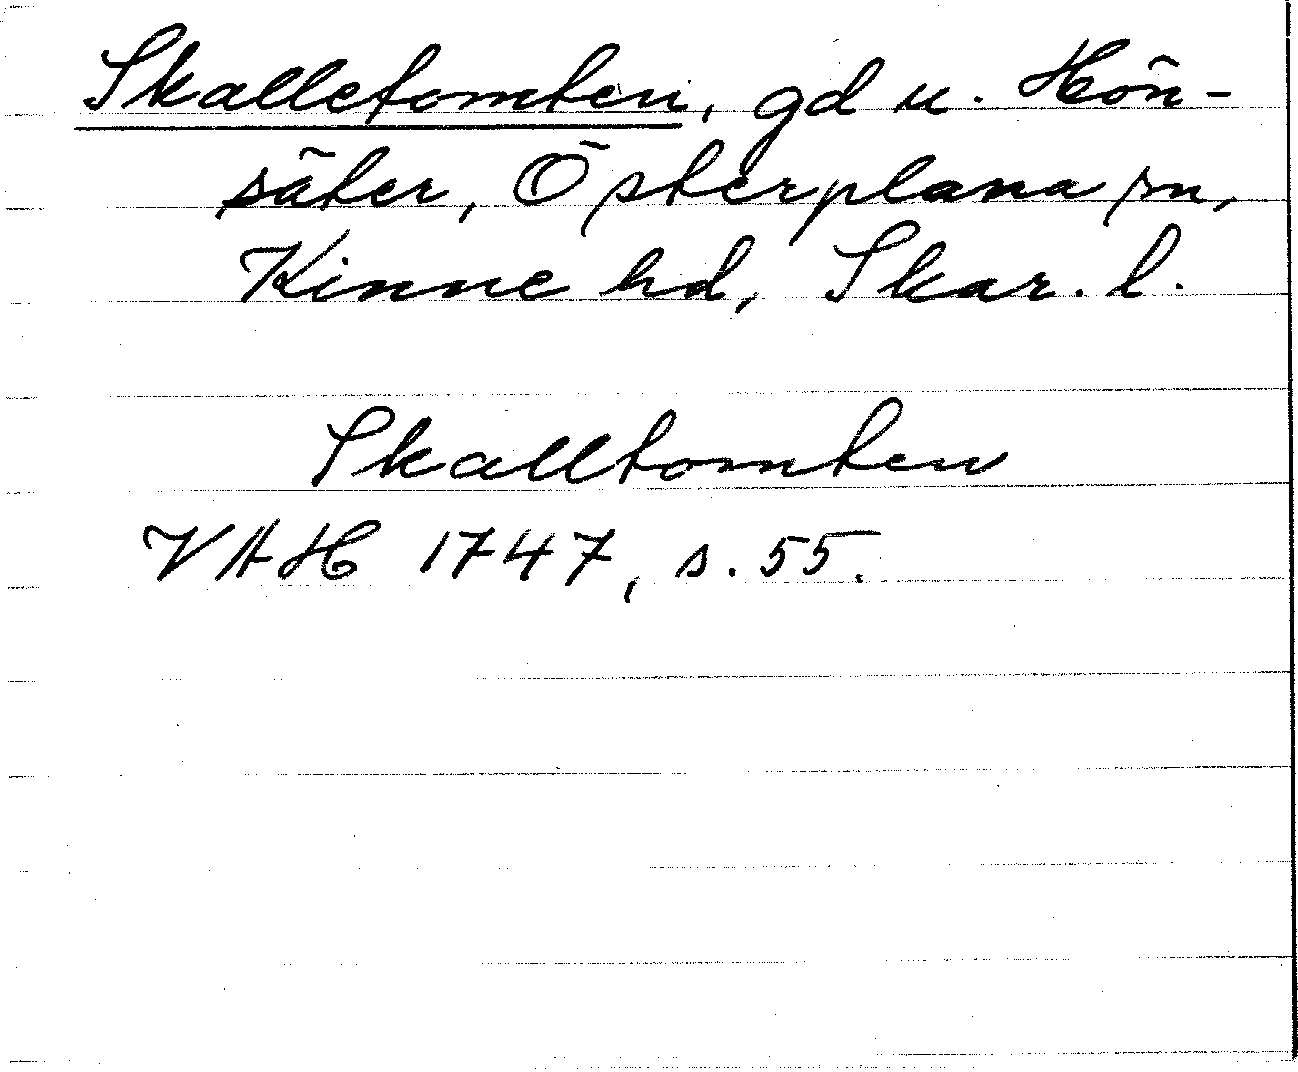 Skalletomten, gd u. Hön-
säter, Österplana sn,
Kinne hd, Skar. l.
Skalltomten
VAH 1747, s. 55.